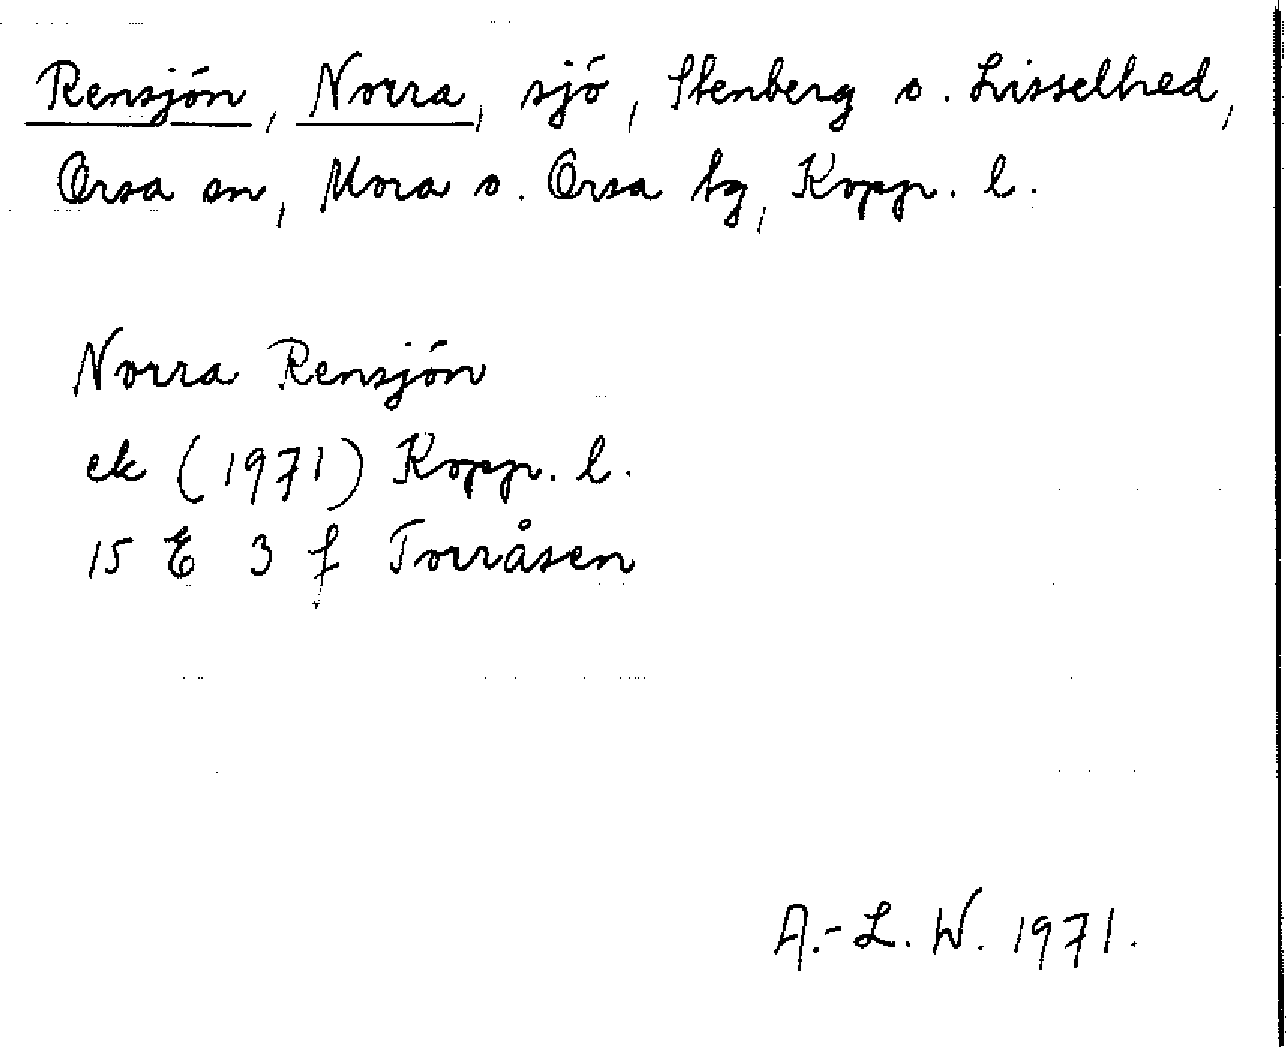 Rensjön, Norra, sjö, Stenberg o. Lisselhed,
Orsa sn, Mora o. Orsa tg, Kopp. l.
Norra Rensjön
ek (1971) Kopp. l.
15 E 3 f Torråsen
A.-L. W. 1971.